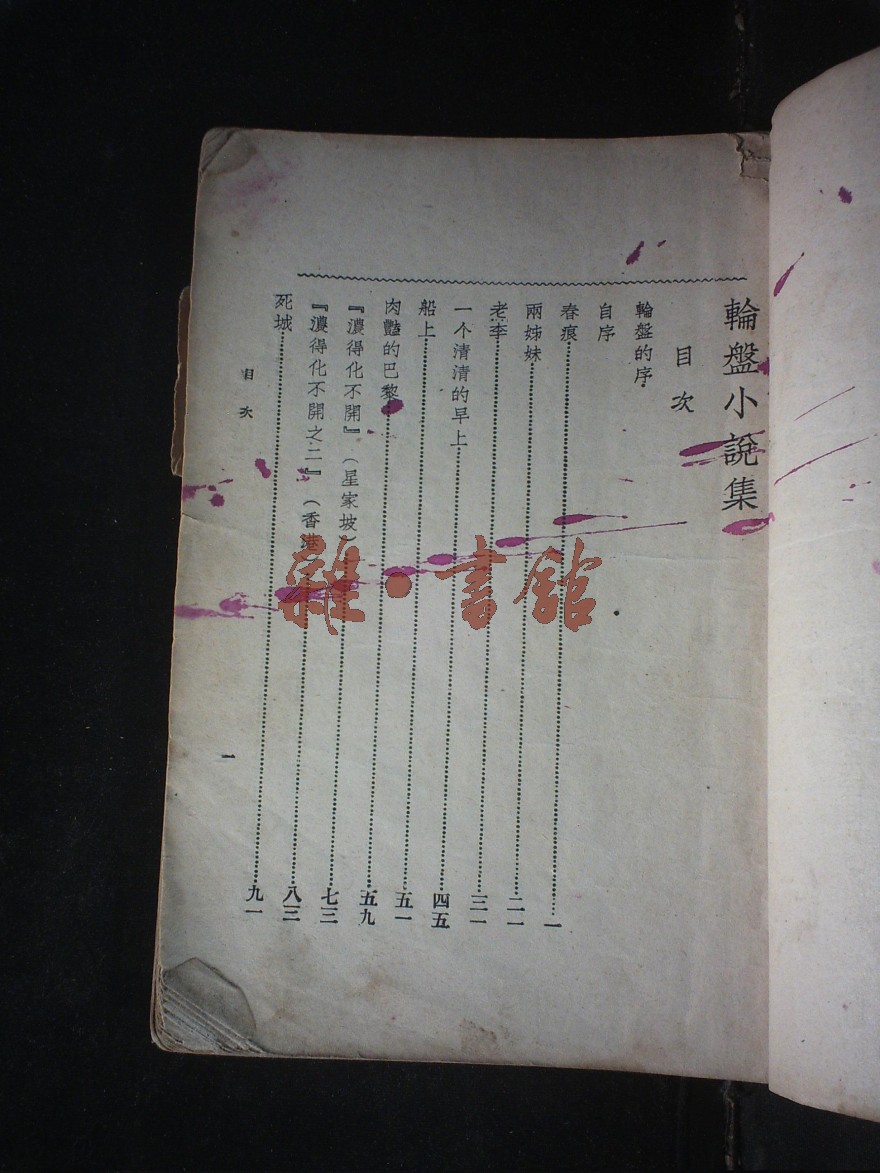 輪盤小說集
目次
輪盤的序
自序
春痕……一
兩姊妹……二一
老李……三一
一个清清的早上……四五
船上……五一
肉豔的巴黎……五九
『濃得化不開』（星家坡）……七三
『濃得化不開之二』（香港）……八三
死城……九一
目次
一
雜·書館